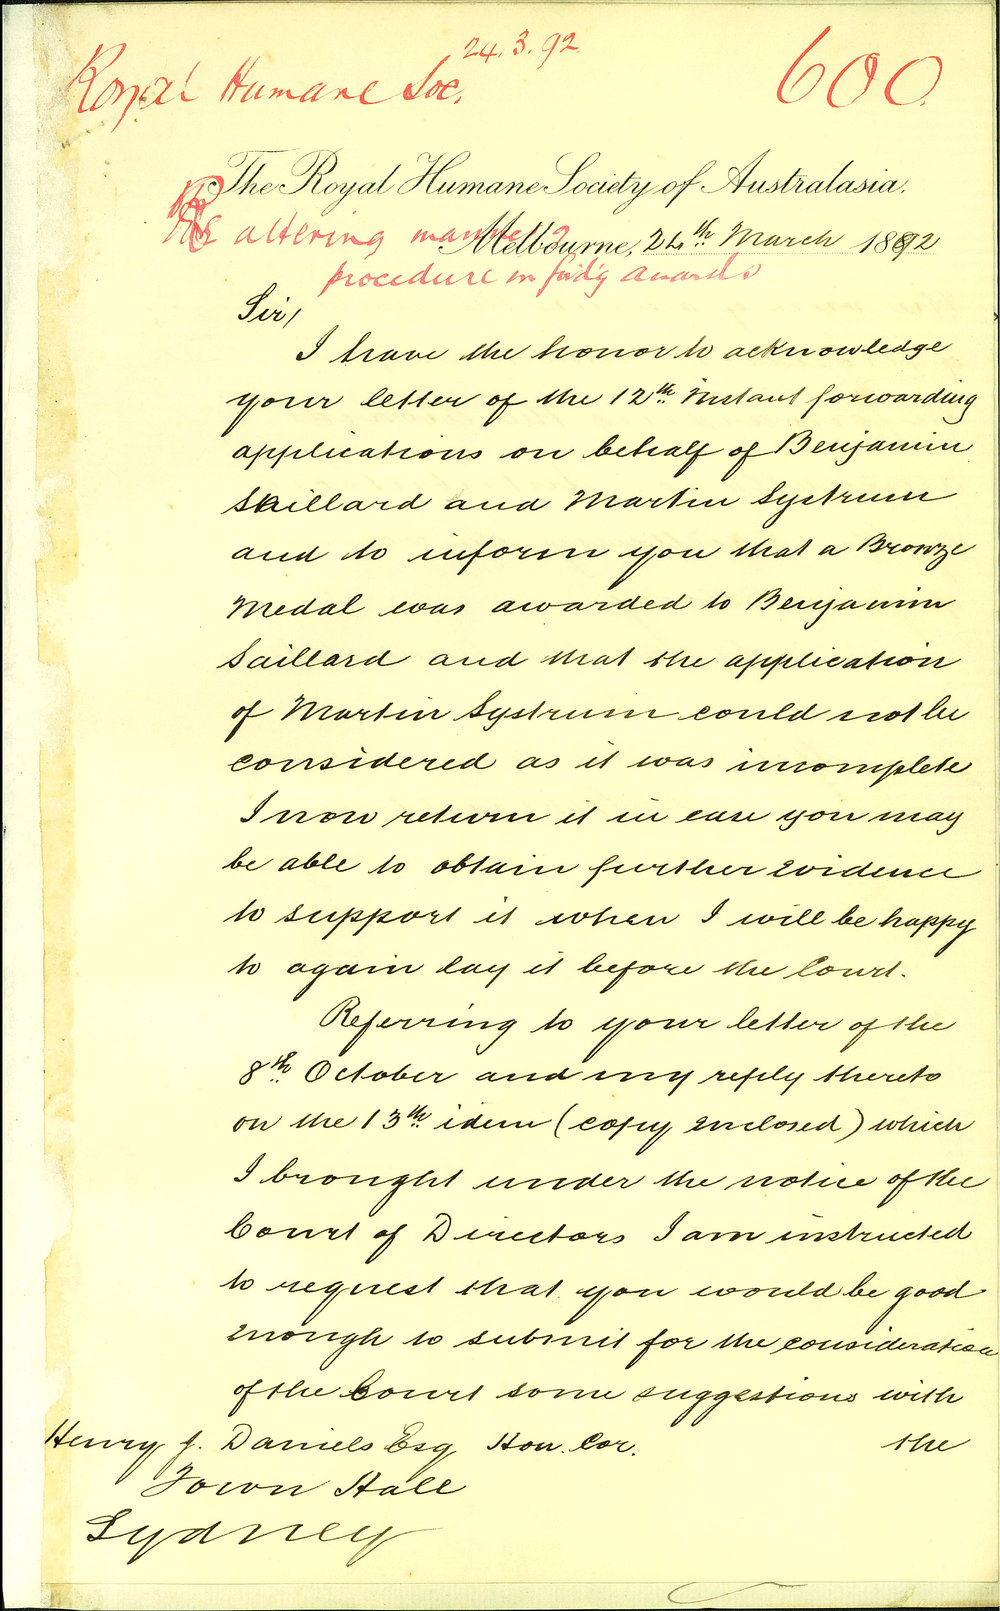 24.3.92
Royal Humane Soc. 600
The Royal Humane Society of Australasia.
Re altering manner
Melbourne, 24th March 1892
procedure in fwd'g awards
Sir,
I have the honor to acknowledge
your letter of the 12th instant forwarding
applications on behalf of Benjamin
Saillard and Martin Systrum
and to inform you that a Bronze
Medal was awarded to Benjamin
Saillard and that the application
of Martin Systrum could not be
considered as it was incomplete
I now return it in case you may
be able to obtain further evidence
to support it when I will be happy
to again lay it before the Court.
Referring to your letter of the
8th October and my reply thereto
on the 13th idem (copy enclosed) which
I brought under the notice of the
Court of Directors I am instructed
to request that you would be good
enough to submit for the consideration
of the Court some suggestions with
Henry J. Daniels Esq Hon. Cor. the
Town Hall
Sydney